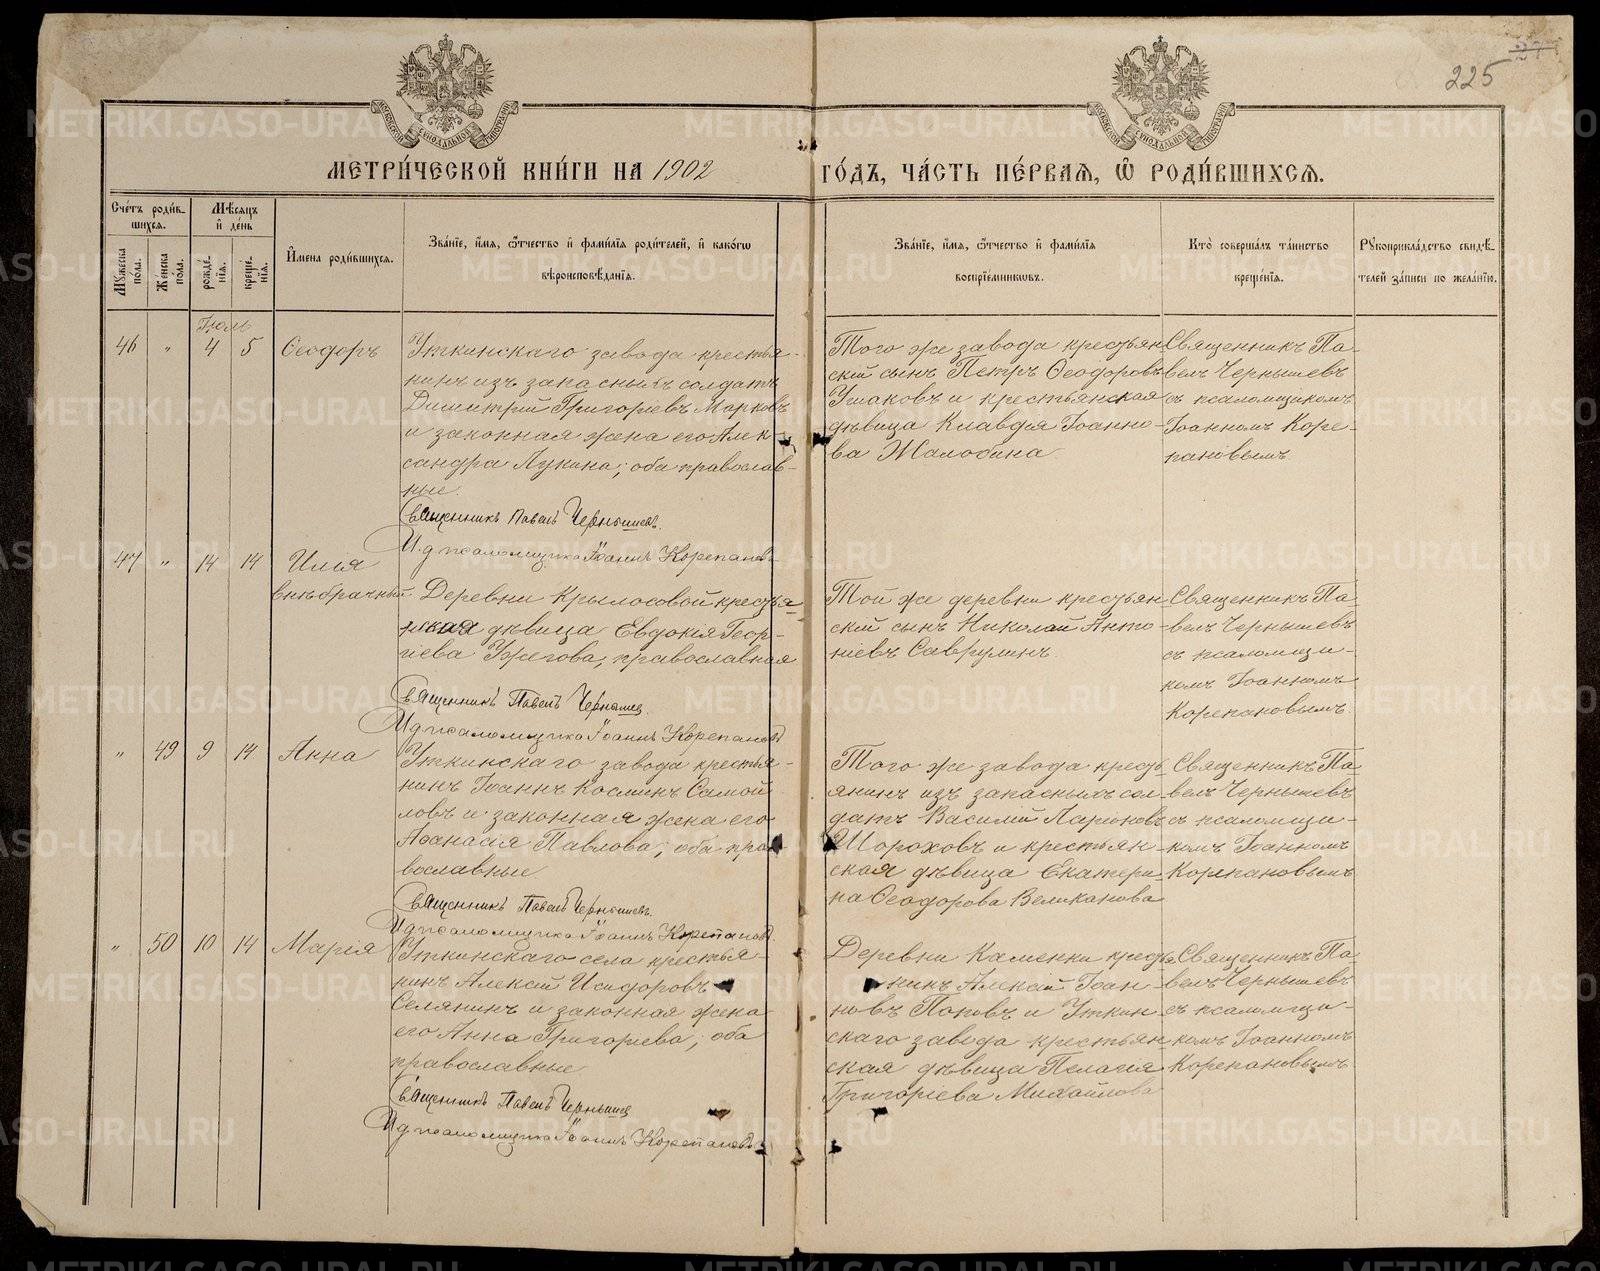 225
МЕТРИ́ЧЕСКОЙ КНИ́ГИ НА 1902 ГО́ДЪ, ЧА́СТЬ ПЕ́РВАЯ, Ѽ РОДИ́ВШИХСЯ.
Сче́тъ роди́в-
шихся.
Му́жеска пола.
Же́нска пола.
Мѣ́сяцъ
и҆ де́нь
рожде́нїя.
креще́нїя.
И҆мена роди́вшихся.
Зва́нїе, и҆́мя, ѻ҆́тчество и҆ фами́лїя роди́телей, и҆ како́гѡ
вѣроисповѣ́данїя.
Зва́нїе, и҆́мя, ѻ҆́тчество и҆ фами́лїя
воспрїе́мниковъ.
Кто̀ соверша́лъ та́инство
креще́нїя.
Рꙋкоприкла́дство свидѣ́-
телей за́писи по жела́нїю.
Іюль
46 " 4 5 Ѳеодоръ
Уткинскаго завода крестья-
нинъ изъ запасныхъ солдатъ
Димитрій Григоріевъ Марковъ
и законная жена его Алек-
сандра Лукина; оба православ-
ные.
Священникъ Павелъ Чернышевъ.
И. д. псаломщика Іоаннъ Корепановъ
Того же завода крестьян-
скій сынъ Петръ Ѳеодоровъ
Ушаковъ и крестьянская
дѣвица Клавдія Іоанно-
ва Жалобина
Священникъ Па-
велъ Чернышевъ
съ псаломщикомъ
Іоанномъ Коре-
пановымъ
47 " 14 14 Илія
внѣбрачный
Деревни Крылосовой крестья-
нская дѣвица Евдокія Геор-
гіева Ужегова, православная
Священникъ Павелъ Чернышев.
И д псаломщика Іоаннъ Корепановъ
Той же деревни крестьян-
скій сынъ Николай Анто-
ніевъ Саврулинъ
Священникъ Па-
велъ Чернышевъ
съ псаломщи-
комъ Іоанномъ
Корепановымъ.
" 49 9 14 Анна
Уткинскаго завода крестья-
нинъ Іоаннъ Косминъ Самой-
ловъ и законная жена его
Аѳанасія Павлова; оба пра-
вославные
Священникъ Павелъ Чернышевъ.
И д псаломщика Іоаннъ Корепановъ.
Того же завода кресть-
янинъ изъ запасныхъ сол-
датъ Василій Ларіоновъ
Шороховъ и крестьян-
ская дѣвица Екатери-
на Ѳеодорова Великанова
Священникъ Па-
велъ Чернышевъ
съ псаломщи-
комъ Іоанномъ
Корепановымъ
" 50 10 14 Марія
Уткинскаго села крестья-
нинъ Алексій Исидоровъ
Селянинъ и законная жена
его Анна Григорьева; оба
православные
Священникъ Павелъ Чернышев
И д псаломщика Іоаннъ Корепановъ
Деревни Каменки кресть-
янинъ Алексій Іоан-
новъ Поповъ и Уткин-
скаго завода крестьян-
ская дѣвица Пелагія
Григоріева Михайлова
Священникъ Па-
велъ Чернышевъ
съ псаломщи-
комъ Іоанномъ
Корепановымъ.
METRIKI.GASO-URAL.RU